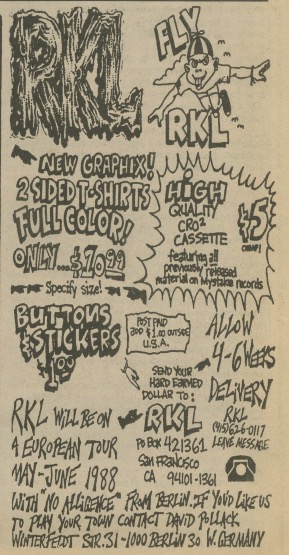 RKL
FLY
RKL
NEW GRAPHIX!
2 SIDED T-SHIRTS
FULL COLOR!
ONLY...$10.99
Specify size!
HIGH
QUALITY
CRO²
CASSETTE
$5
CHEAP!
featuring all
previously released
material on Mystake records
BUTTONS
& STICKERS
$1.00
POST PAID
ADD $1.00 OUTSIDE
U.S.A.
ALLOW
4-6 WEEKS
DELIVERY
SEND YOUR
HARD EARNED
DOLLAR TO:
RKL
PO BOX 421361
SAN FRANCISCO
CA 94101-1361
RKL
(415) 626-0117
LEAVE MESSAGE
RKL WILL BE ON
A EUROPEAN TOUR
MAY-JUNE 1988
WITH "NO ALLIGENCE" FROM BERLIN. IF YOU'D LIKE US
TO PLAY YOUR TOWN CONTACT DAVID POLLACK
WINTERFELDT STR. 31 - 1000 BERLIN 30 W. GERMANY